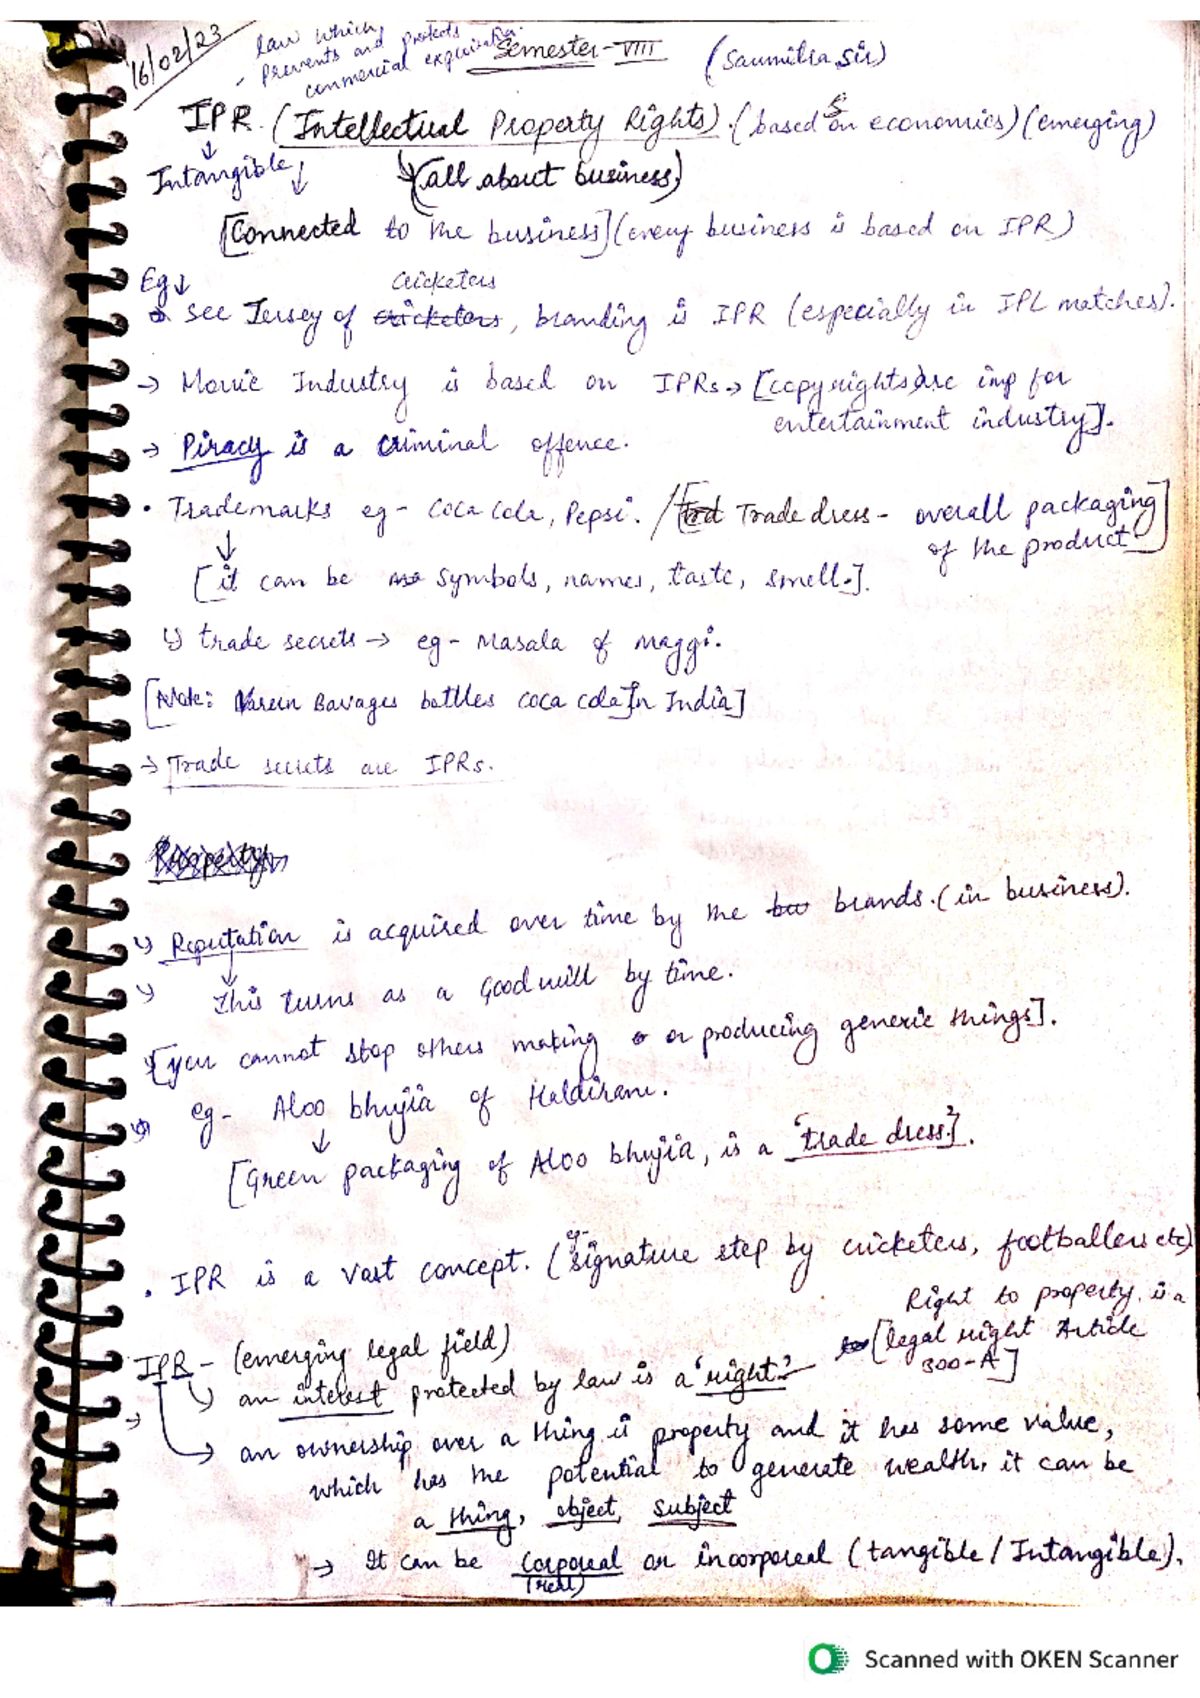 16/02/23
law which
- prevents and protects
commercial exploitation.
Semester-VIII
(Saumitra Sir)
IPR. (Intellectual Property Rights). (based on economics) (emerging)
Intangible
(all about business)
[Connected to the business] (every business is based on IPR)
Eg
cricketers
See Jersey of cricketers, branding is IPR (especially in IPL matches).
→ Movie Industry is based on IPRs → [copyrights are imp for
entertainment industry].
→ Piracy is a criminal offence.
• Trademarks eg - Coca Cola, Pepsi. / [Trade dress - overall packaging
of the product]
[it can be symbols, names, taste, smell.].
trade secrets → eg - Masala of Maggi.
[Note: Varun Bavages bottles coca cola In India]
→ Trade secrets are IPRs.
Property
Reputation is acquired over time by the brands. (in business).
This turns as a Good will by time.
[you cannot stop others making or producing generic things].
eg - Aloo bhujia of Haldiram.
[Green packaging of Aloo bhujia, is a 'trade dress'].
• IPR is a vast concept. (eg- signature step by cricketers, footballers etc)
Right to property is a
[legal right Article
300-A]
IPR - (emerging legal field)
an interest protected by law is a 'right'
→ an ownership over a thing is property and it has some value,
which has the potential to generate wealth, it can be
a thing, object, subject
→ It can be corporeal or incorporeal (tangible / Intangible).
(real)
Scanned with OKEN Scanner